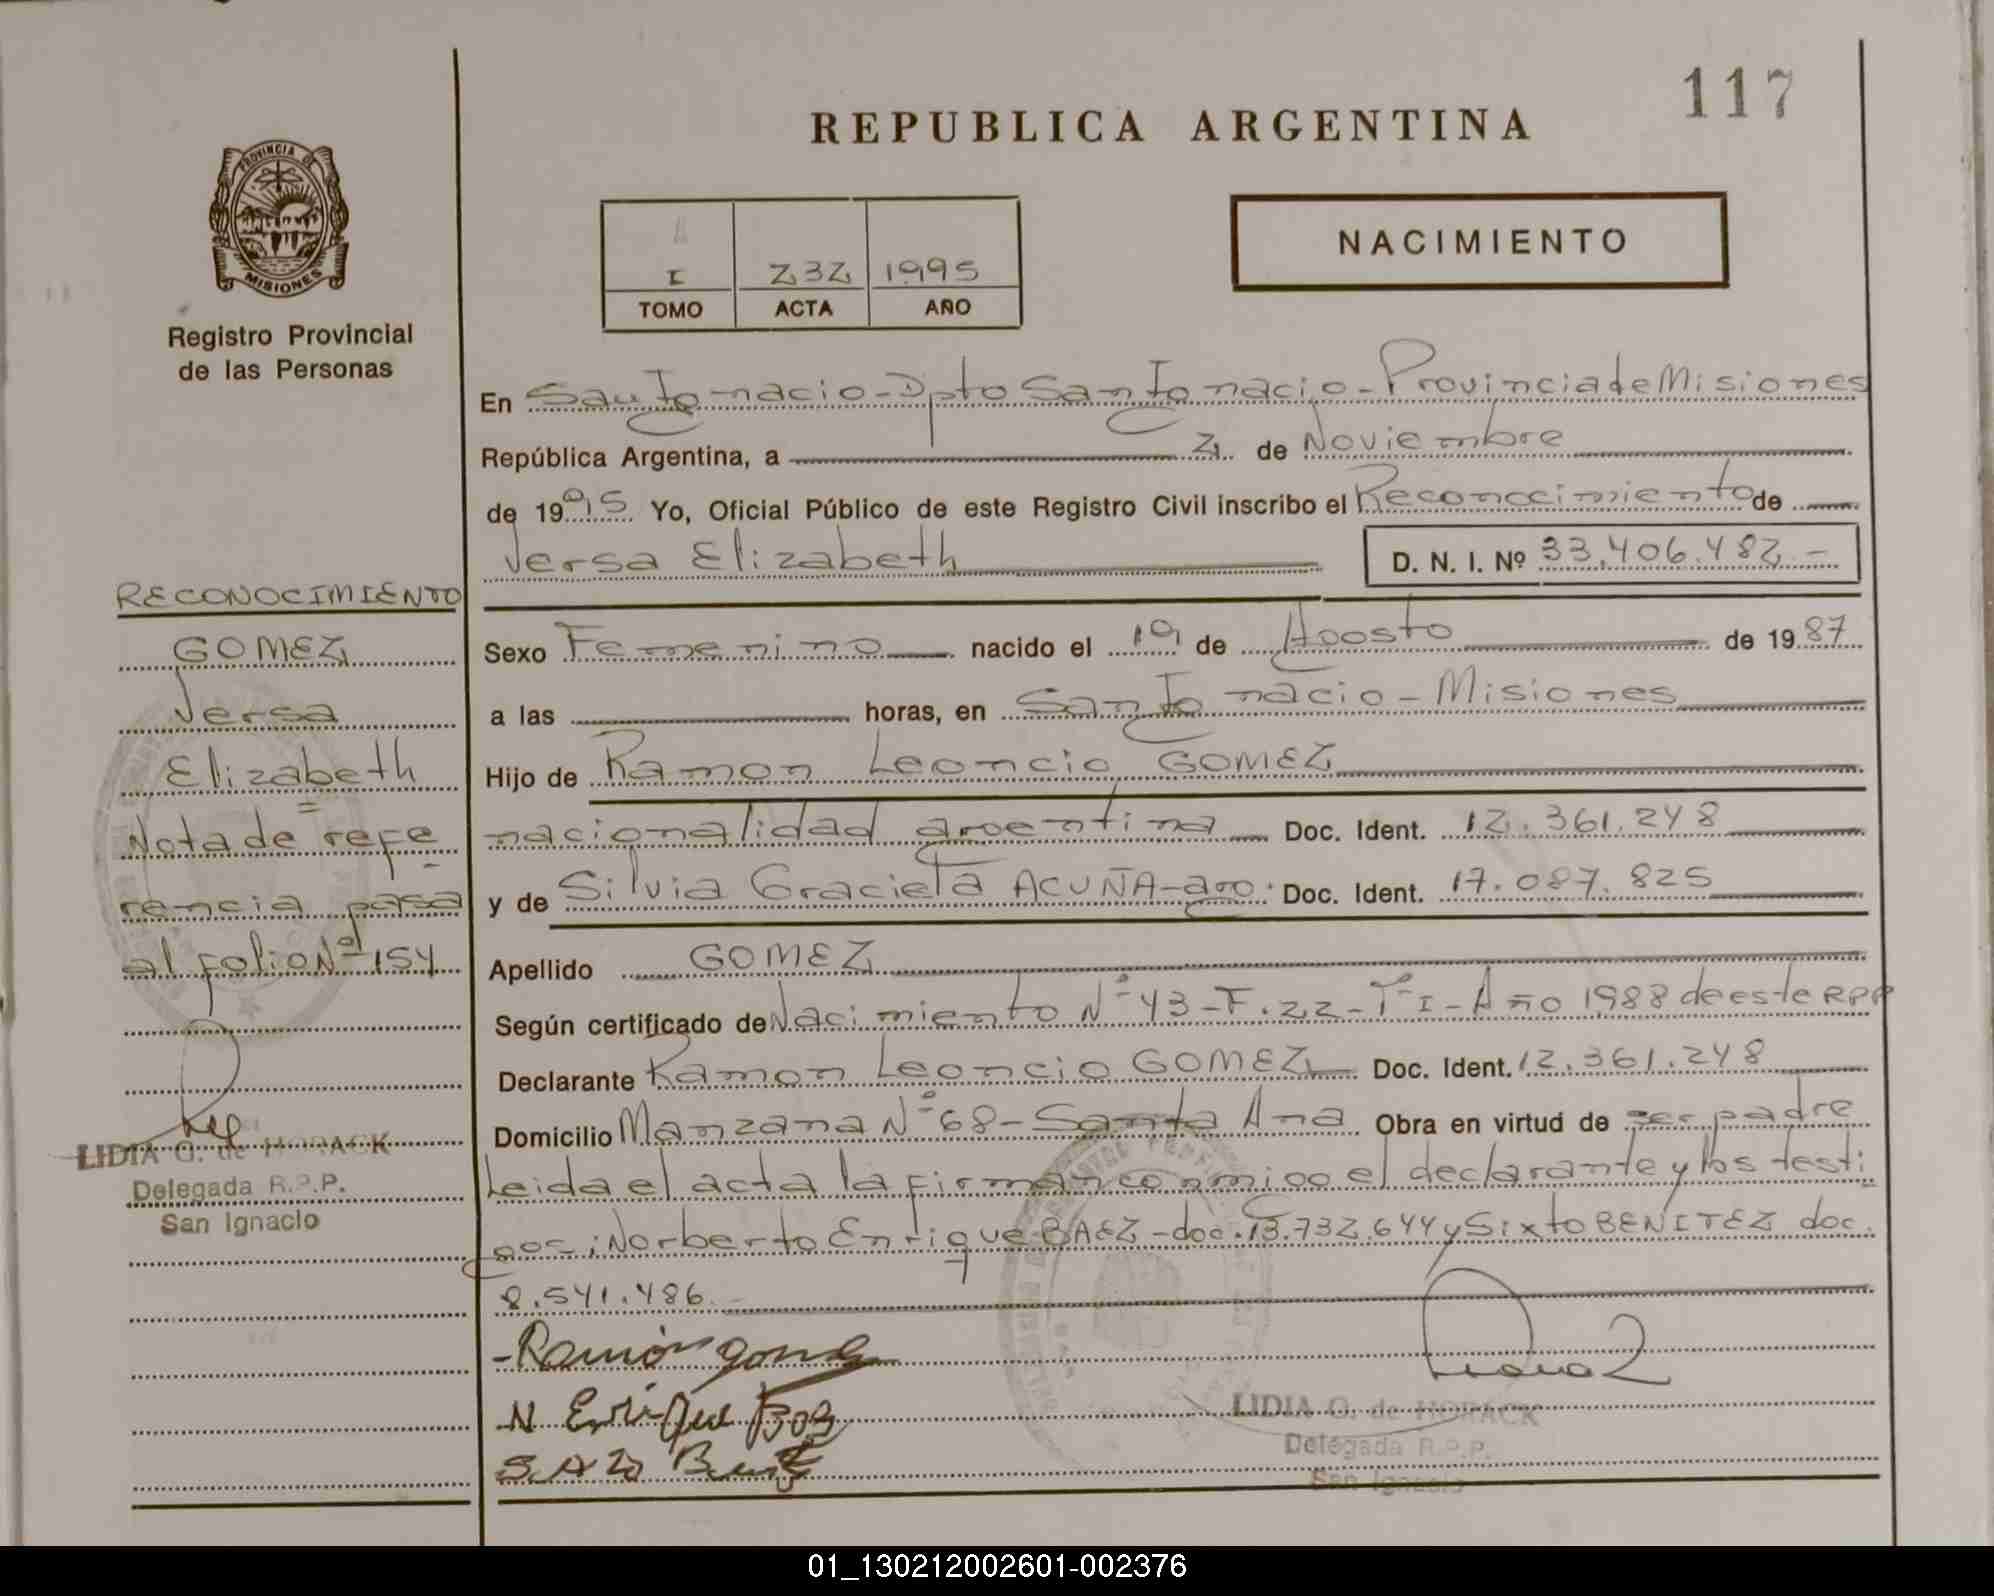 117
REPUBLICA ARGENTINA
PROVINCIA DE
MISIONES
Registro Provincial
de las Personas
I 232 1995
TOMO ACTA AÑO
NACIMIENTO
En San Ignacio - Dpto San Ignacio - Provincia de Misiones
República Argentina, a 2 de Noviembre
de 1995 Yo, Oficial Público de este Registro Civil inscribo el Reconocimiento de
Jersa Elizabeth D. N. I. Nº 33.406.482.-
RECONOCIMIENTO
GOMEZ
Jersa
Elizabeth
Nota de refe
rencia pasa
al folio Nº 154
LIDIA G. de HORACK
Delegada R.P.P.
San Ignacio
Sexo Femenino nacido el 19 de Agosto de 1987
a las horas, en San Ignacio - Misiones
Hijo de Ramon Leoncio GOMEZ
nacionalidad argentina Doc. Ident. 12.361.248
y de Silvia Graciela ACUÑA - arg. Doc. Ident. 17.087.825
Apellido GOMEZ
Según certificado de Nacimiento Nº 43 - F. 22 - Tº I - Año 1988 de este RPP
Declarante Ramon Leoncio GOMEZ Doc. Ident. 12.361.248
Domicilio Manzana Nº 68 - Santa Ana Obra en virtud de ser padre
Leida el acta la firman conmigo el declarante y los testi
gos: Norberto Enrique BAEZ - doc. 13.732.644 y Sixto BENITEZ doc.
8.541.486.-
Ramón
N Enrique
LIDIA G. de HORACK
Delegada R.P.P.
San Ignacio
01_130212002601-002376